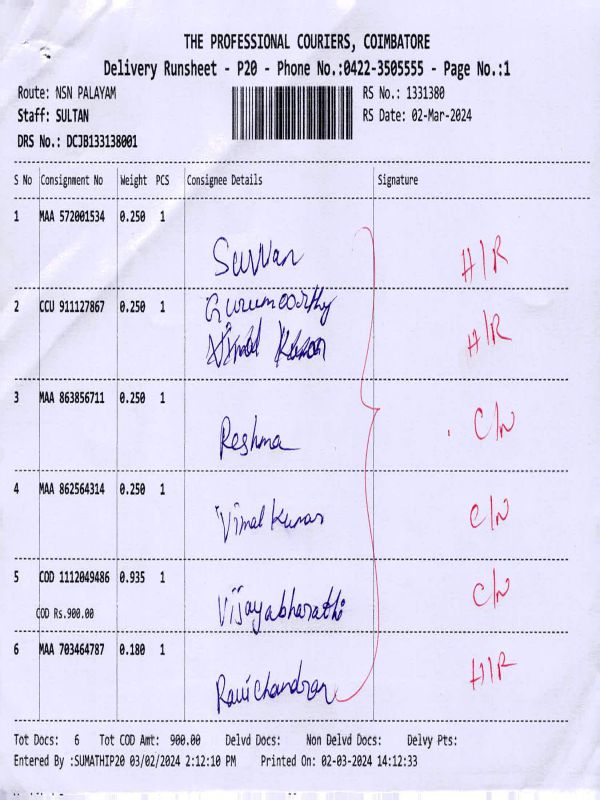 THE PROFESSIONAL COURIERS, COIMBATORE
Delivery Runsheet - P20 - Phone No.:0422-3505555 - Page No.:1
Route: NSN PALAYAM RS No.: 1331380
Staff: SULTAN RS Date: 02-Mar-2024
DRS No.: DCJB133138001
S No Consignment No Weight PCS Consignee Details Signature
1 MAA 572001534 0.250 1
H/R
2 CCU 911127867 0.250 1 Gurumoorthy
Vimal Kumar H/R
3 MAA 863856711 0.250 1
Reshma C/N
4 MAA 862564314 0.250 1
Vimal Kumar C/N
5 COD 1112049486 0.935 1
COD Rs.900.00 Vijayabharathi C/N
6 MAA 703464787 0.180 1
Ravichandran H/R
Tot Docs: 6 Tot COD Amt: 900.00 Delvd Docs: Non Delvd Docs: Delvy Pts:
Entered By :SUMATHIP20 03/02/2024 2:12:10 PM Printed On: 02-03-2024 14:12:33